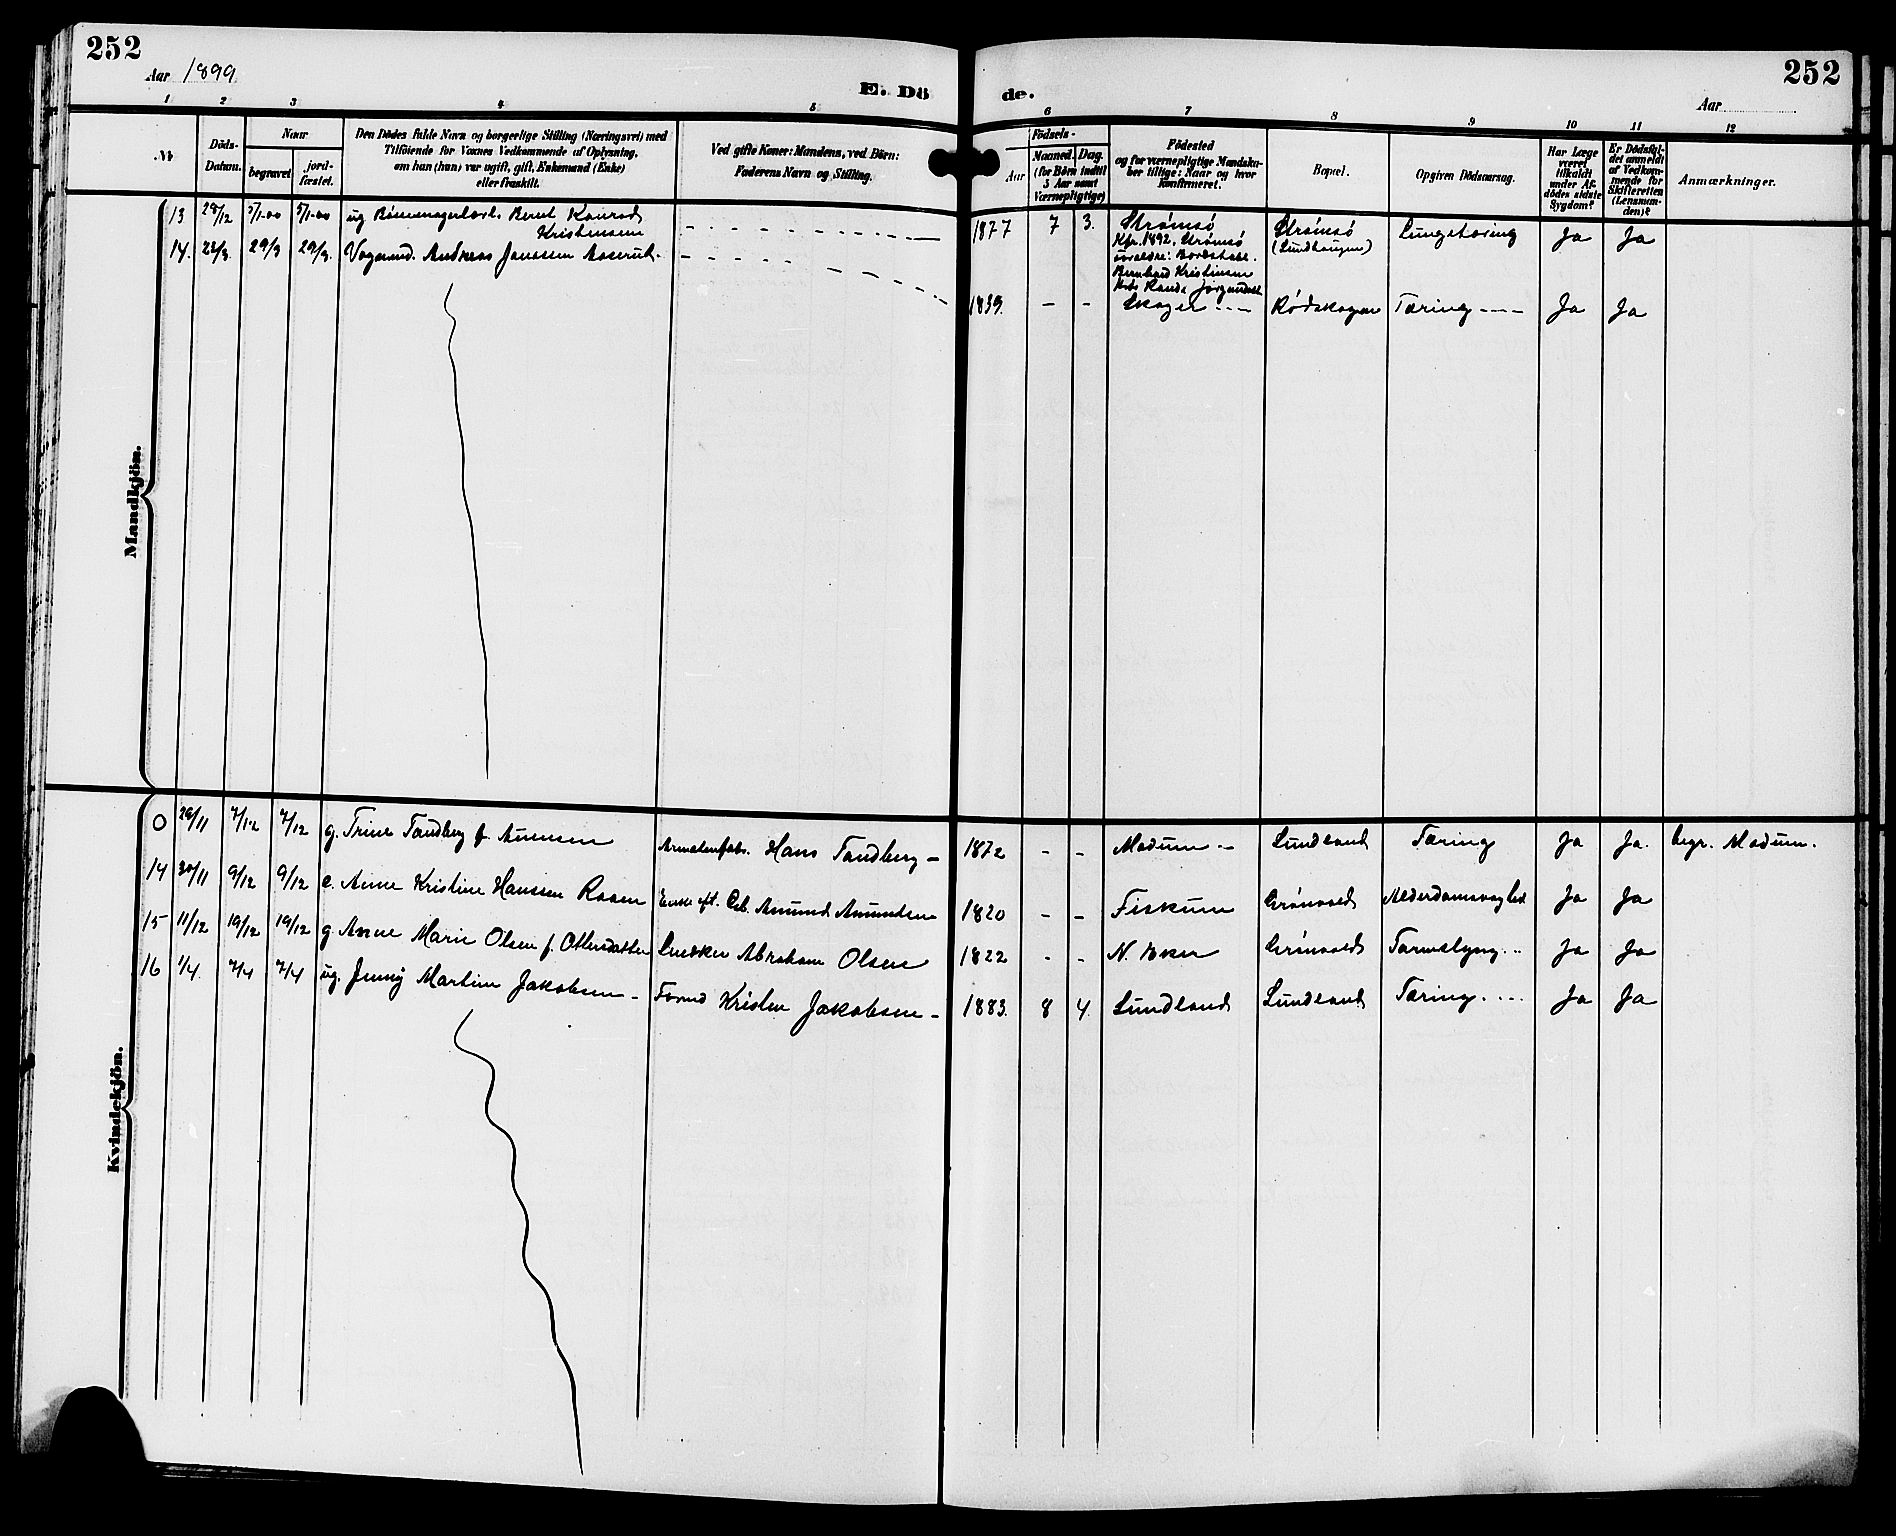 252
Aar 1899
E. Dö
de.
252
Aar
1 2 3 4 5 6 7 8 9 10 11 12
Nr
Döds-
Datum.
Naar
begravet
jord-
fæstet.
Den Dödes fulde Navn og borgerlige Stilling (Næringsvei) med
Tilföiende for Voxnes Vedkommende af Oplysning,
om han (hun) var ugift, gift, Enkemand (Enke)
eller fraskilt.
Ved gifte Koner: Mandens, ved Börn:
Faderens Navn og Stilling.
Födsels-
Aar
Maaned. Dag.
(for Börn indtil
5 Aar samt
Værnepligtige)
Födested
og for værnepligtige Mandska-
ber tillige: Naar og hvor
konfirmeret.
Bopæl.
Opgiven Dödsaarsag.
Har Læge
været
tilkaldt
under Af-
dödes sidste
Sygdom?
Er Dödsfal-
det anmeldt
af Vedkom-
mende for
Skifteretten
(Lensman-
den)?
Anmærkninger.
Mandkjön.
13 28/12 5/1-00 5/1-00 ug Bernt Konrad
Kristensen
1877 7 3. Strømsø Strømsø Lungetæring Ja Ja
Kfr. 1892, Strømsø (Lundhaugen)
Bernhard Kristensen
14. 29/3 29/3. Andreas Janssen Aaserud.
1839. - - Skoger Rødskogen Tæring Ja Ja
Kvindekjön.
0 29/11 7/12 7/12 g. Trine Tandberg f. Hans Tandberg - 1872 - - Modum - Lundland Tæring Ja Ja. begr. Modum.
14 30/11 9/12 9/12 e. Anne Kristine Hanssen Raaen Enke eft. Anund Anundsen 1820 - - Fiskum Grønvold Ja Ja
15 11/12 19/12 19/12 g. Anne Marie Olsen f. Ottersdatter Snedker Abraham Olsen 1822 - - N. Eker Grønvold Ja Ja
16 1/4. 7/4 7/4 ug. Jenny Martine Jakobsen - Formd Kristen Jakobsen - 1883. 8 4. Lundland Lundland Tæring. Ja Ja